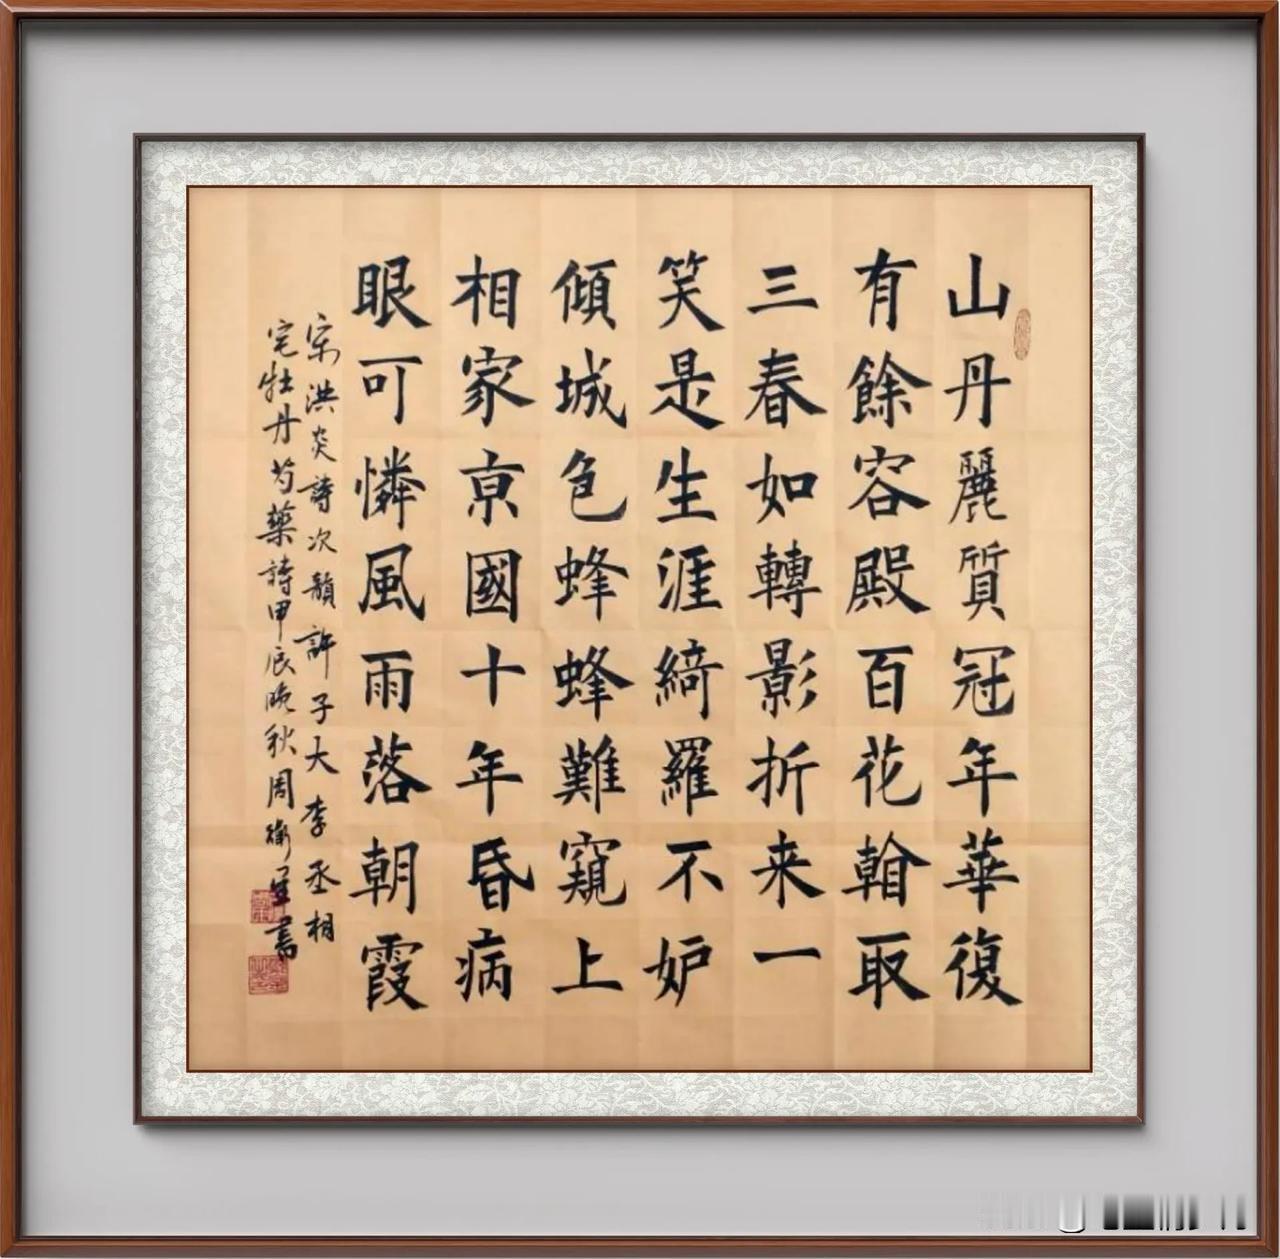 山丹麗質冠年華復
有餘容殿百花看取
三春如轉影折来一
笑是生涯綺羅不妒
傾城色蜂蜂難窺上
相家亰國十年昏病
眼可憐風雨落朝霞
宋洪炎詩次韻許子大李丞相
宅牡丹芍藥詩甲辰晚秋周衛軍書